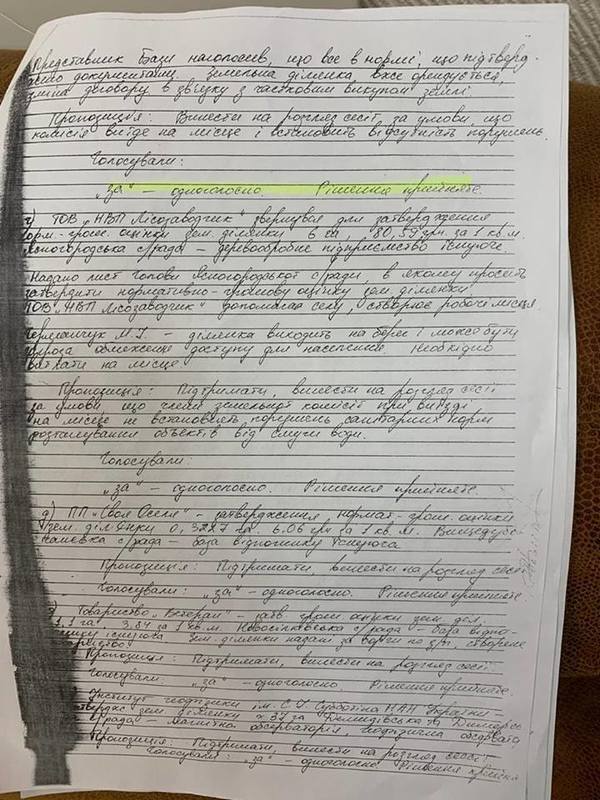 Представник бази наголосив, що все в нормі, що підтверд-
жено документами. Земельна ділянка, вже орендується,
зміна договору в звязку з частковим викупом землі.
Пропозиція: Винести на розгляд сесії, за умови, що
комісія виїде на місце і встановить відсутність порушень.
Голосували:
„за" – одноголосно. Рішення прийняте.
ТОВ „НВП Лісозаводчик" звернувся для затвердження
норм-грош. оцінки зем. ділянки 80,59 грн. за 1 кв.м.
Ясногородська с/рада – деревообробне підприємство існуюче.
Надано лист голови Ясногородської с/ради, в якому просить
затвердити нормативно-грошову оцінку зем. ділянки
ТОВ „НВП Лісозаводчик" допомагає селу, створює робочі місця
М.І. – ділянка виходить на берег і може бути
загроза обмеження доступу для населення. Необхідно
виїхати на місце
Пропозиція: Підтримати, винести на розгляд сесії
за умови, що члени земельної комісії при виїзді
на місце не встановлять порушень санітарних норм
розташування объектів від смуги води.
Голосували:
„за" – одноголосно. Рішення прийняте.
д) ПП „Своя Оселя" – затвердження нормат-грош. оцінки
зем. ділянки 0,3227 га. 6.06 грн за 1 кв.м.
с/рада – база відпочинку існуюча
Пропозиція: Підтримати, винести на розгляд сесії
Голосували: „за" – одноголосно. Рішення прийняте
Товариство „Ветеран" – затв. грош. оцінки зем. діл.
1,1 га 3.84 за 1 кв.м. Новосілківська с/рада – база відпо-
чинку існуюча зем. ділянки надані створене
Пропозиція: Підтримати, винести на розгляд сесії
Голосували: „за" – одноголосно Рішення прийняте.
Інститут геофізики ім. С.І. Субботіна НАН України
зем. ділянки Демидівська
с/рада – магнітна обсерваторія, геофізична обсерват.
Пропозиція: Підтримати, винести на розгляд сесії
Голосували: „за" – одноголосно Рішення прийня